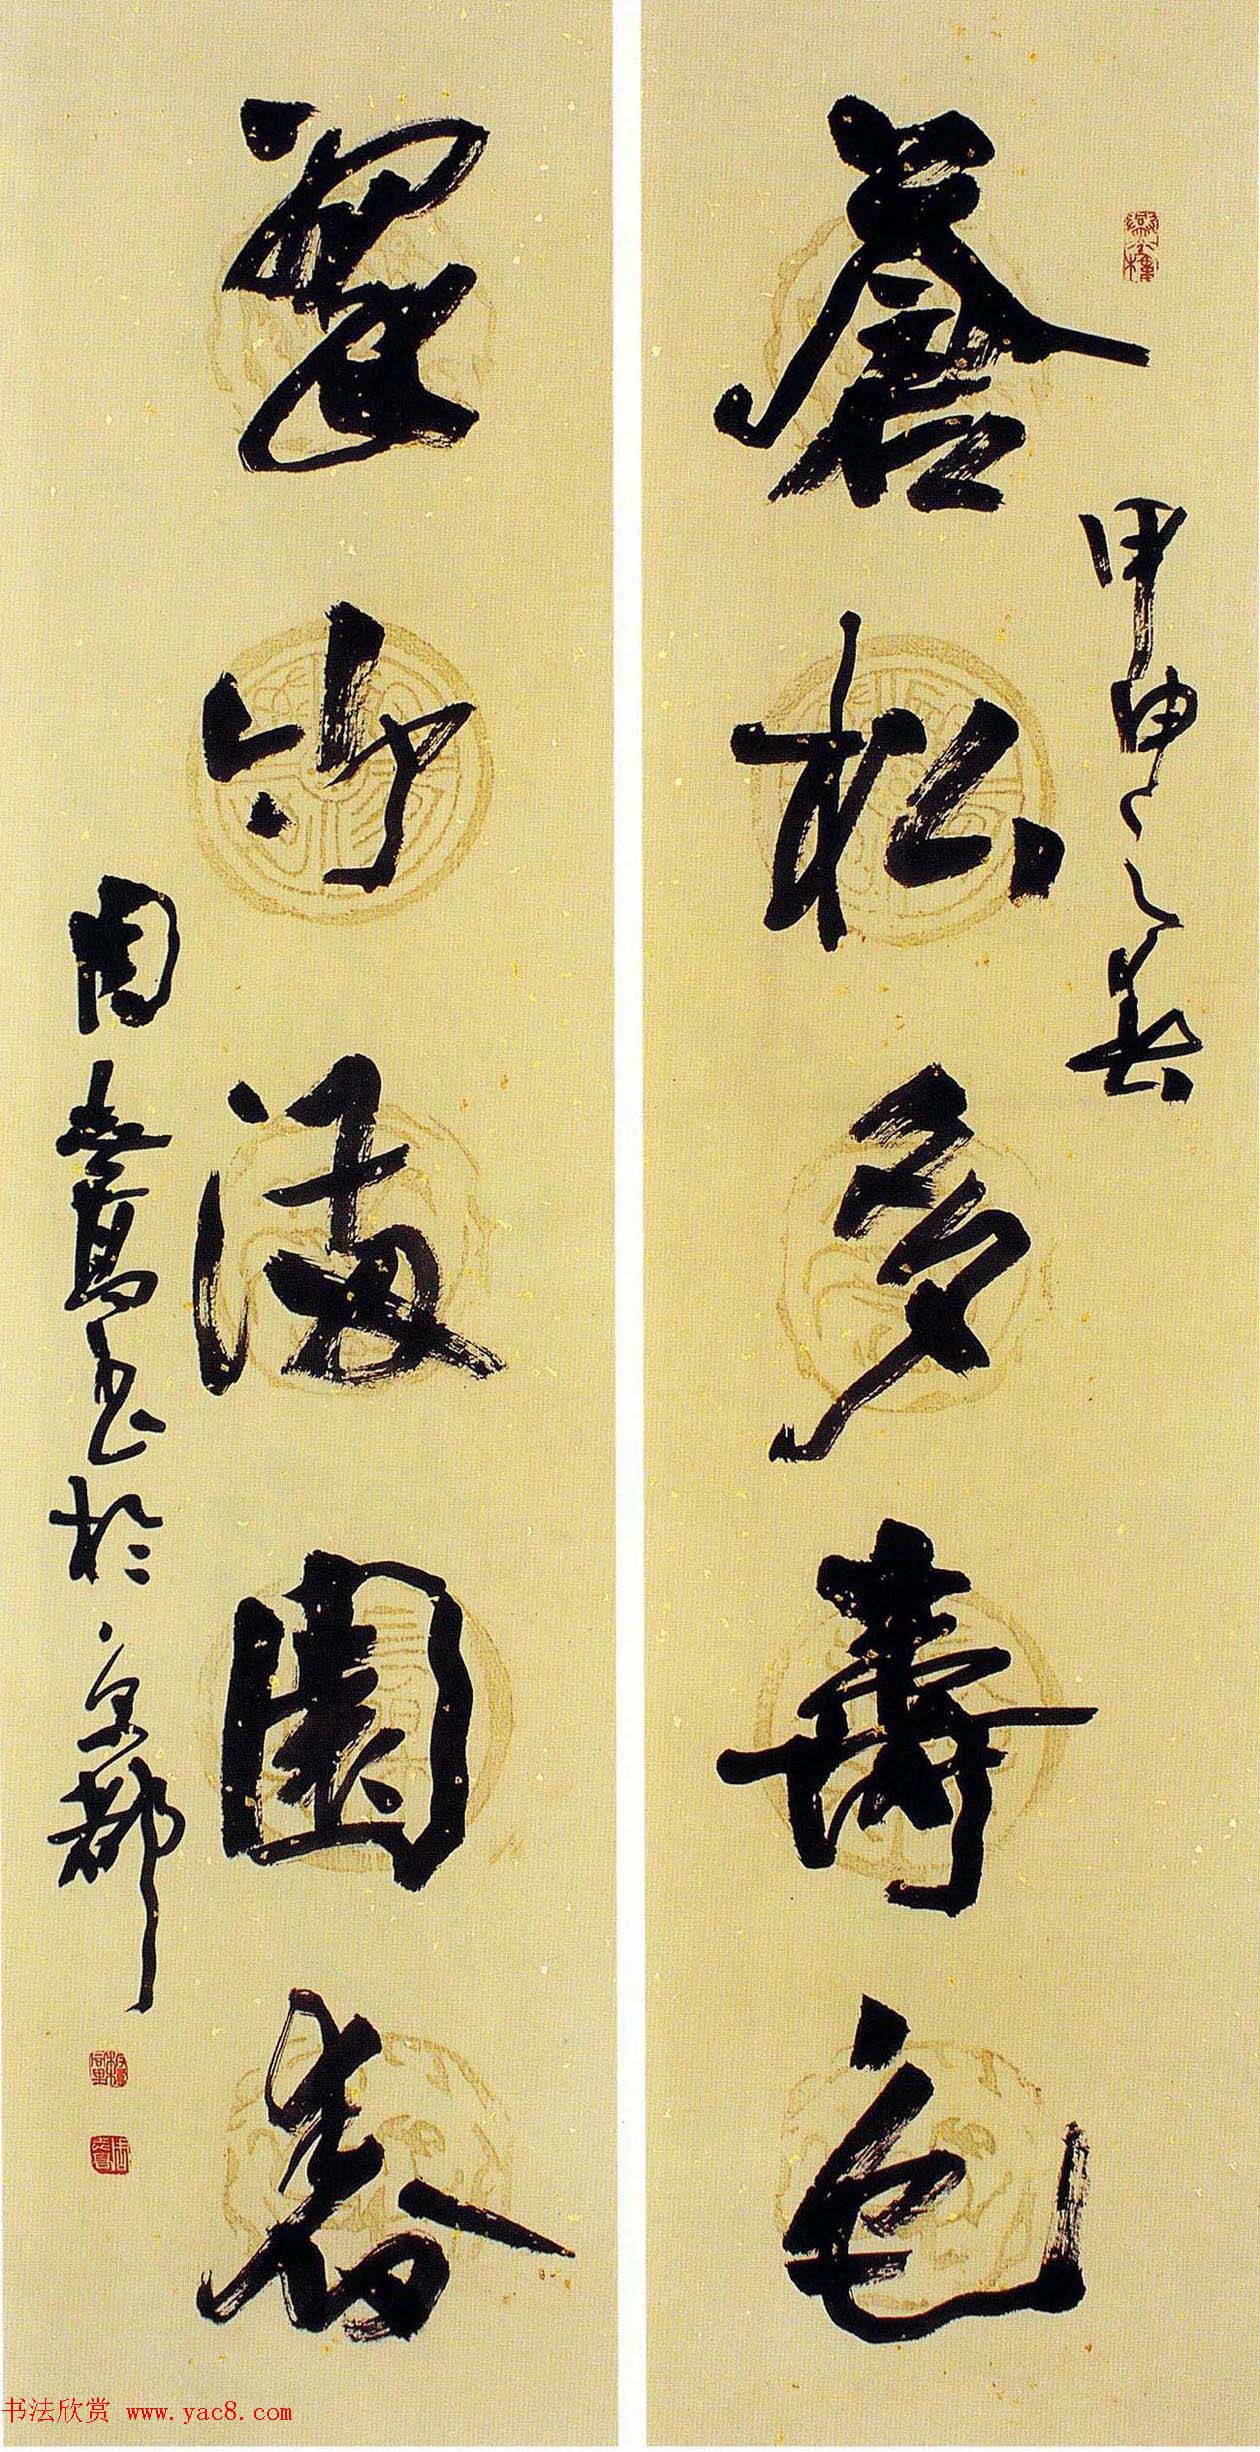 甲申之春
蒼松多壽色
翠竹滿園春
周志高書於京都
书法欣赏 www.yac8.com